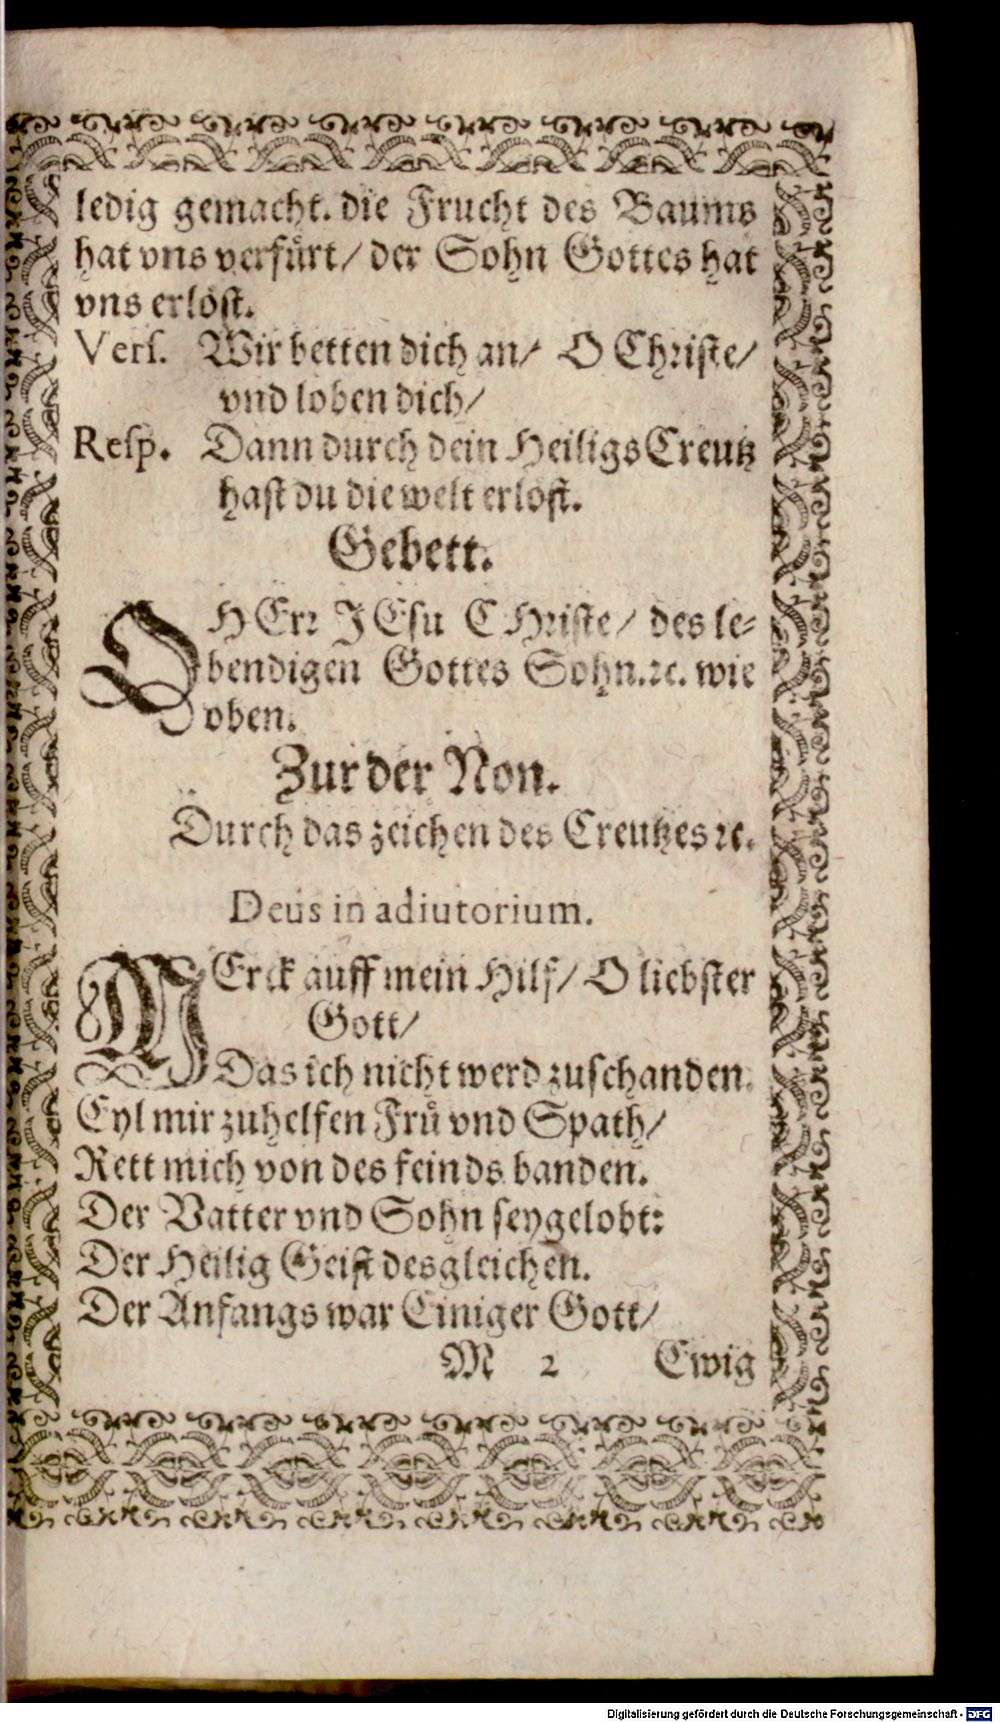 ledig gemacht. die Frucht des Baums
hat vns verfürt/ der Sohn Gottes hat
vns erlöst.
Vers. Wir betten dich an/ O Christe/
vnd loben dich/
Resp. Dann durch dein Heiligs Creutz
hast du die welt erlöst.
Gebett.
O HErr JEsu CHriste/ des le-
bendigen Gottes Sohn. ꝛc. wie
oben.
Zur der Non.
Durch das zeichen des Creutzes ꝛc.
Deus in adiutorium.
MErck auff mein Hilf/ O liebster
Gott/
Das ich nicht werd zuschanden.
Eyl mir zuhelfen Frů vnd Spath/
Rett mich von des feinds banden.
Der Vatter vnd Sohn sey gelobt:
Der Heilig Geist desgleichen.
Der Anfangs war Einiger Gott/
M 2 Ewig
Digitalisierung gefördert durch die Deutsche Forschungsgemeinschaft - DFG